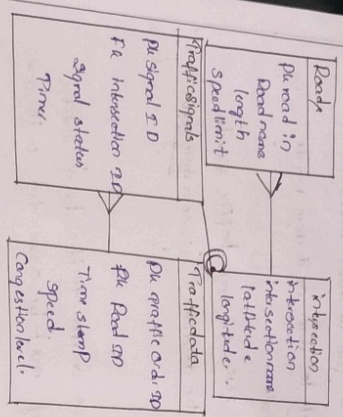 Roads
PK road in
Road name
length
Speed limit
intersection
intersection
intersection name
latitude
longitude.
Trafficsignals
PK Signal ID
FK intersection ID
Signal status
Timer.
Trafficdata
PK traffic
PK Road ID
Time stamp
Speed.
Congestion level.